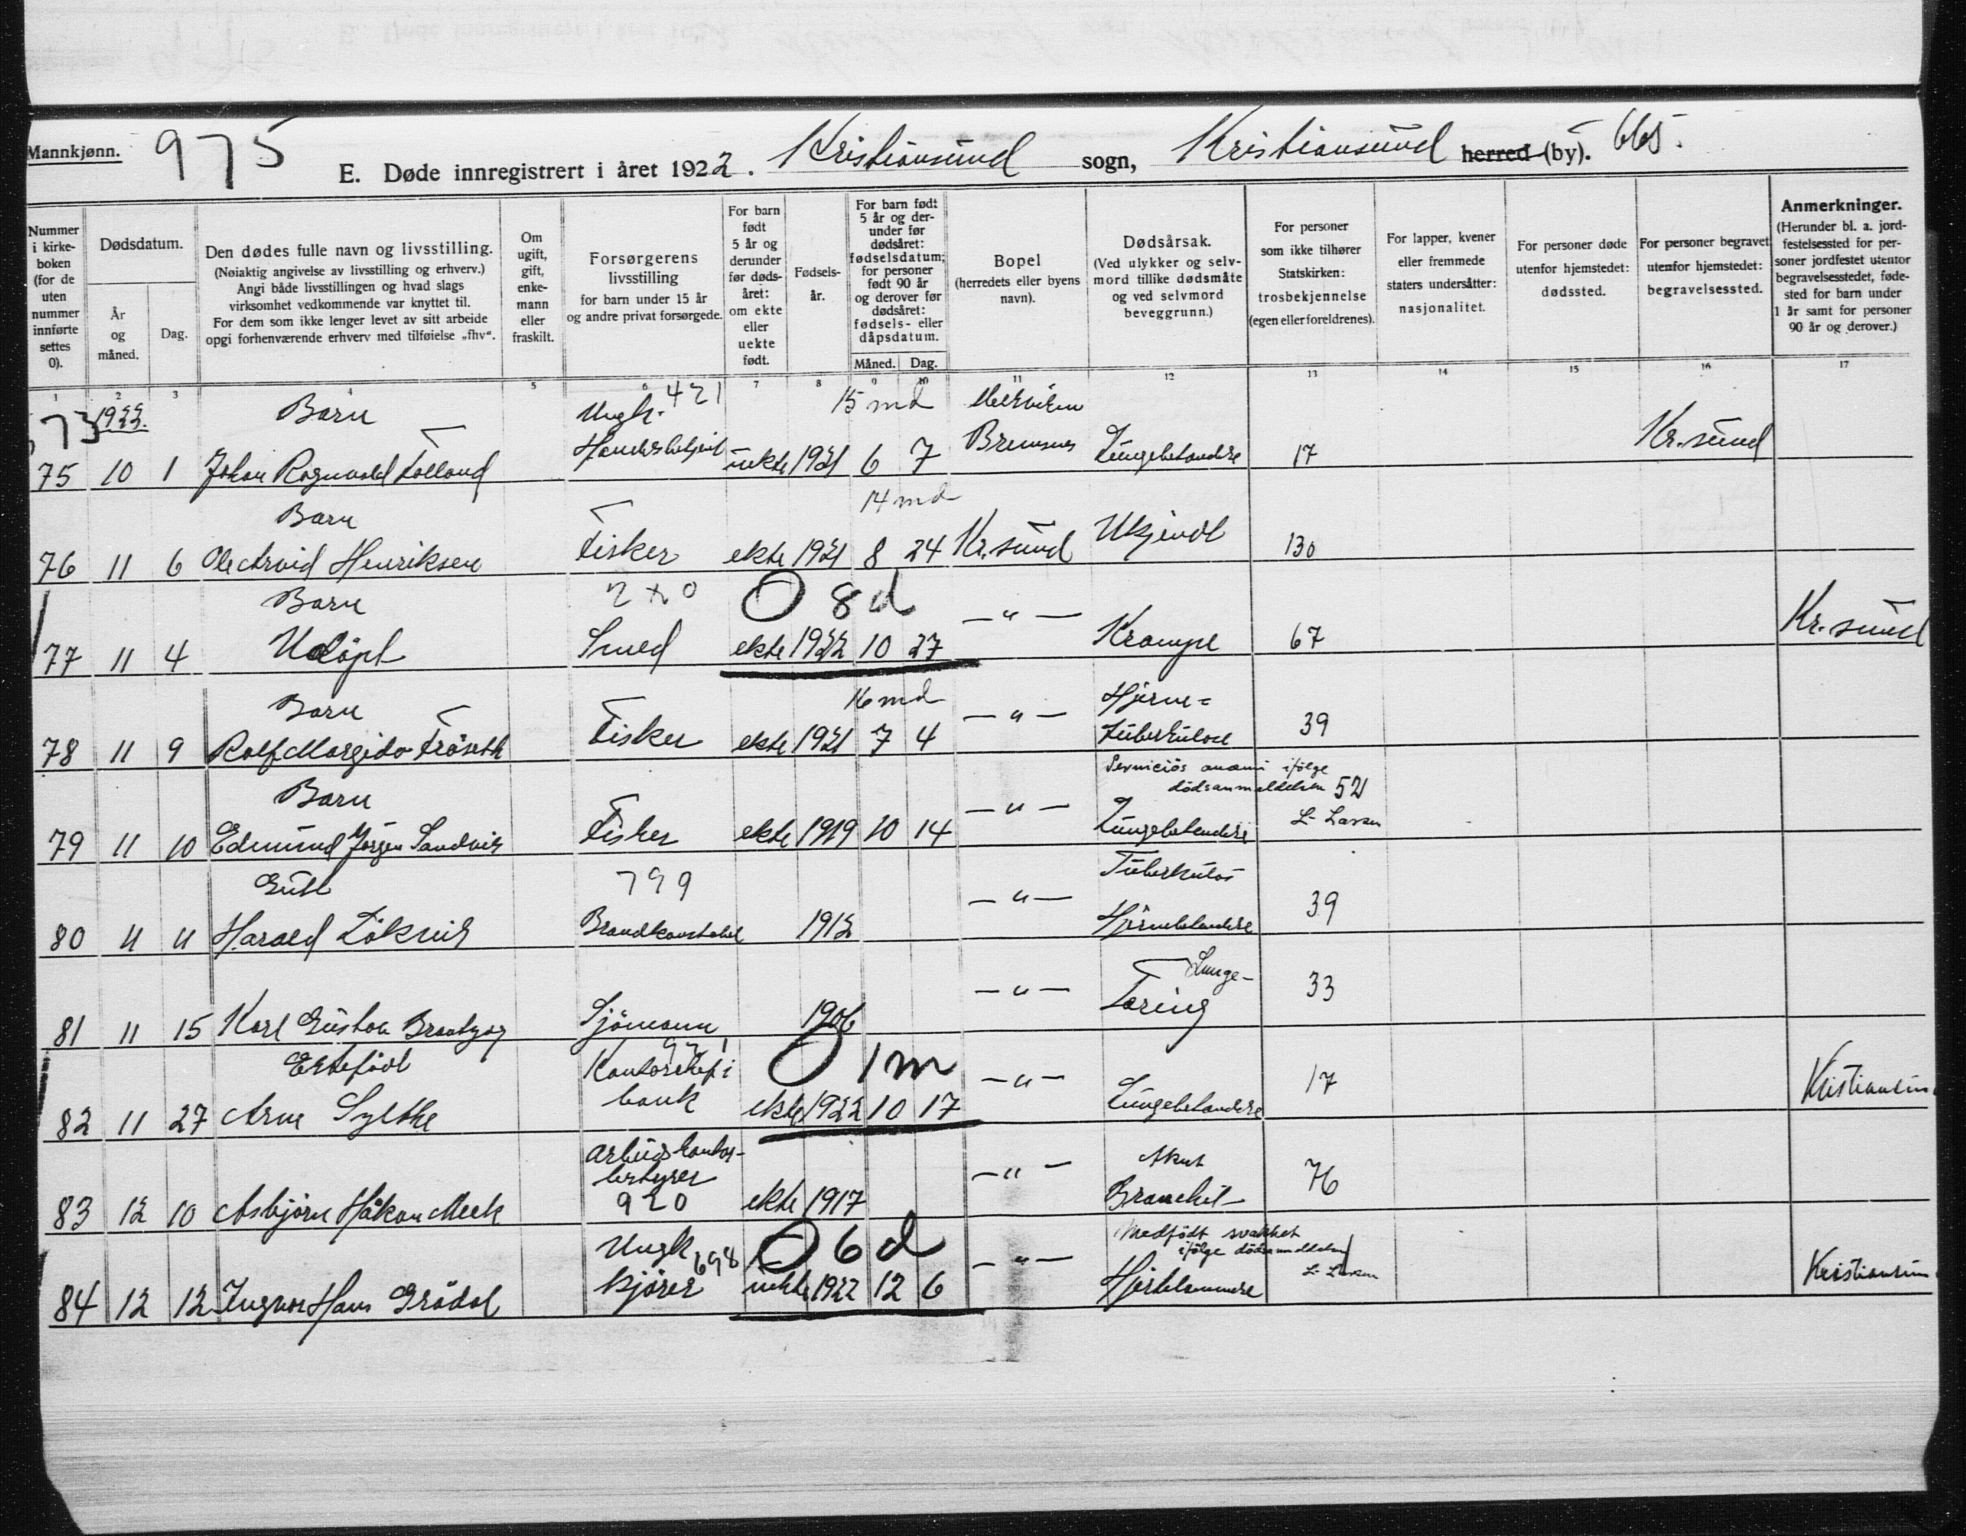 Mannkjønn.
975
E. Døde innregistrert i året 1922. Kristiansund sogn, Kristiansund herred (by). 665.
Nummer i kirke-boken (for de uten nummer innførte settes 0).
Dødsdatum.
År og måned.
Dag.
Den dødes fulle navn og livsstilling.
(Nøiaktig angivelse av livsstilling og erhverv.)
Angi både livsstillingen og hvad slags
virksomhet vedkommende var knyttet til.
For dem som ikke lenger levet av sitt arbeide
opgi forhenværende erhverv med tilføielse „fhv“.
Om ugift, gift, enke-mann eller fraskilt.
Forsørgerens livsstilling
for barn under 15 år
og andre privat forsørgede.
For barn født 5 år og derunder før døds-året: om ekte eller uekte født.
Fødsels-år.
For barn født 5 år og der-under før dødsåret: fødselsdatum; for personer født 90 år og derover før dødsåret: fødsels- eller dåpsdatum.
Måned. Dag.
Bopel
(herredets eller byens navn).
Dødsårsak.
(Ved ulykker og selv-mord tillike dødsmåte og ved selvmord beveggrunn.)
For personer som ikke tilhører Statskirken: trosbekjennelse (egen eller foreldrenes).
For lapper, kvener eller fremmede staters undersåtter: nasjonalitet.
For personer døde utenfor hjemstedet: dødssted.
For personer begravet utenfor hjemstedet: begravelsessted.
Anmerkninger.
(Herunder bl. a. jord-festelsessted for per-soner jordfestet utenfor begravelsesstedet, føde-sted for barn under 1 år samt for personer 90 år og derover.)
1 2 3 4 5 6 7 8 9 10 11 12 13 14 15 16 17
73 1922. Barn Ungk. 421 15 md
75 10 1 Johan Rognvald Folland uekte 1921 6 7 Bremsnes Lungebetendse 17 Kr.sund
Barn 14 md
76 11 6 Ole Arvid Henriksen Fisker ekte 1921 8 24 Kr.sund Ukjendt 130
Barn O 8 d
77 11 4 Udøpt Smed ekte 1922 10 27 — " — Krampe 67 Kr.sund
Barn 16 md Hjerne=
78 11 9 Rolf Margido Frøseth Fisker ekte 1921 7 4 — " — tuberkulose 39
Barn Perniciøs anæmi ifølge
dødsanmeldelsen 52
79 11 10 Edmund Jørgen Sandvik Fisker ekte 1919 10 14 — " — Lungebetendse L. Larsen
Gutt 799 Tuberkuløs
80 11 11 Harald Løkvik Brandkonstabel 1912 — " — Hjernebetendse 39
Lunge-
81 11 15 Karl Gustav Sjømann 1906 — " — Tæring 33
Ektefødt Kontorchef i O 1 m
82 11 27 Arne Sylthe bank ekte 1922 10 17 — " — Lungebetendse 17 Kristiansun
Arbeidskontor-
bestyrer Akut
83 12 10 Asbjørn Håkon Meek 920 ekte 1917 — " — Bronchit 76
Ungk 698 O 6 d Medfødt svakhet
ifølge dødsanmeldelsen
84 12 12 Ingvar Hans Grødal kjører uekte 1922 12 6 — " — Hjertelammelse L. Larsen Kristiansun